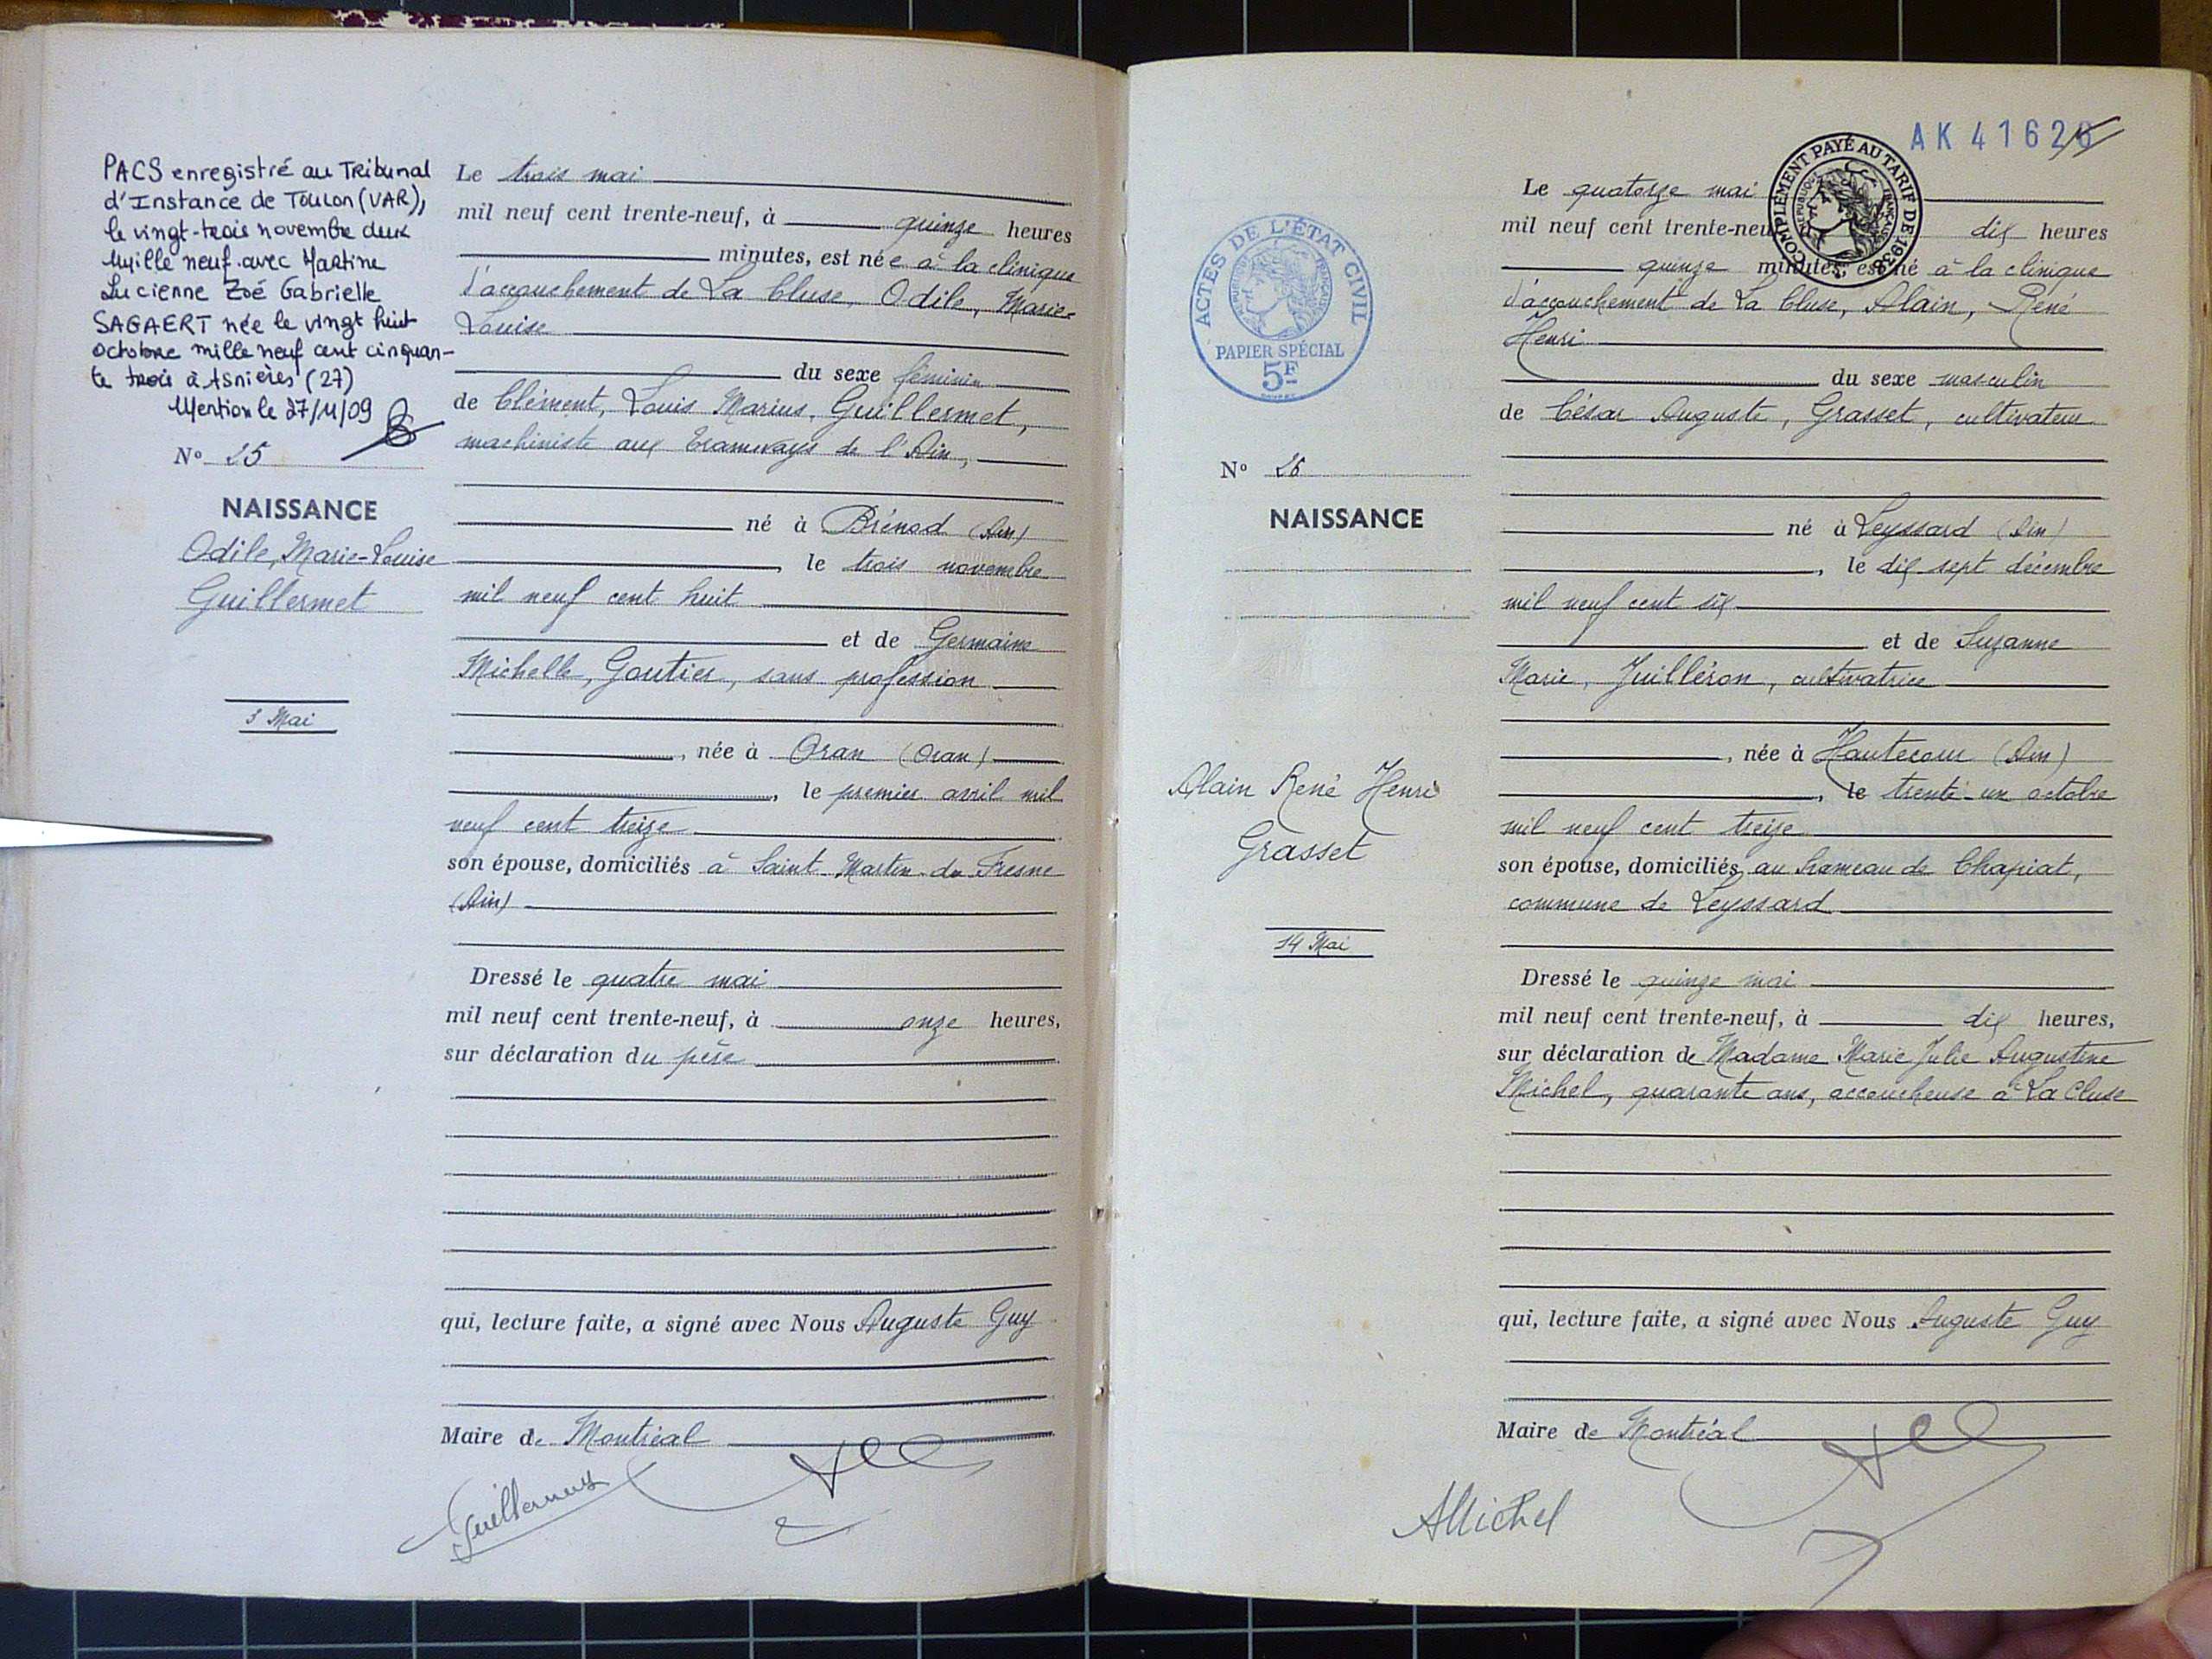 PACS enregistré au Tribunal
d'Instance de Toulon (VAR),
le vingt-trois novembre deux
mille neuf avec Martine
Lucienne Zoé Gabrielle
SAGAERT née le vingt huit
octobre mille neuf cent cinquan-
te trois à Asnières (27)
Mention le 27/11/09
N° 25
NAISSANCE
Odile, Marie-Louise
Guillermet
3 Mai
Le trois mai
mil neuf cent trente-neuf, à quinze heures
minutes, est née à la clinique
d'accouchement de La Cluse, Odile, Marie-
Louise
du sexe féminin
de Clément, Louis Marius, Guillermet,
machiniste aux Tramways de l'Ain,
né à Brénod (Ain)
, le trois novembre
mil neuf cent huit
et de Germaine
Michelle, Goutier, sans profession
, née à Oran (Oran)
, le premier avril mil
neuf cent treize
son épouse, domiciliés à Saint Martin du Fresne
(Ain)
Dressé le quatre mai
mil neuf cent trente-neuf, à onze heures,
sur déclaration du père
qui, lecture faite, a signé avec Nous Auguste Guy
Maire de Montréal
Guillermet
AK 41626
COMPLÉMENT PAYÉ AU TARIF DE 1938
RÉPUBLIQUE FRANÇAISE
ACTES DE L'ÉTAT CIVIL
RÉPUBLIQUE FRANÇAISE
PAPIER SPÉCIAL
5F
N° 26
NAISSANCE
Alain René Henri
Grasset
14 Mai
Le quatorze mai
mil neuf cent trente-neu dix heures
quinze minutes, est né à la clinique
d'accouchement de La Cluse, Alain, René
Henri
du sexe masculin
de César Auguste, Grasset, cultivateur
né à Leyssard (Ain)
, le dix sept décembre
mil neuf cent six
et de Suzanne
Marie, Juilléron, cultivatrice
, née à Hautecour (Ain)
, le trente-un octobre
mil neuf cent treize
son épouse, domiciliés au hameau de Chapiat,
commune de Leyssard
Dressé le quinze mai
mil neuf cent trente-neuf, à dix heures,
sur déclaration de Madame Marie Julie Augustine
Michel, quarante ans, accoucheuse à La Cluse
qui, lecture faite, a signé avec Nous Auguste Guy
Maire de Montréal
AMichel